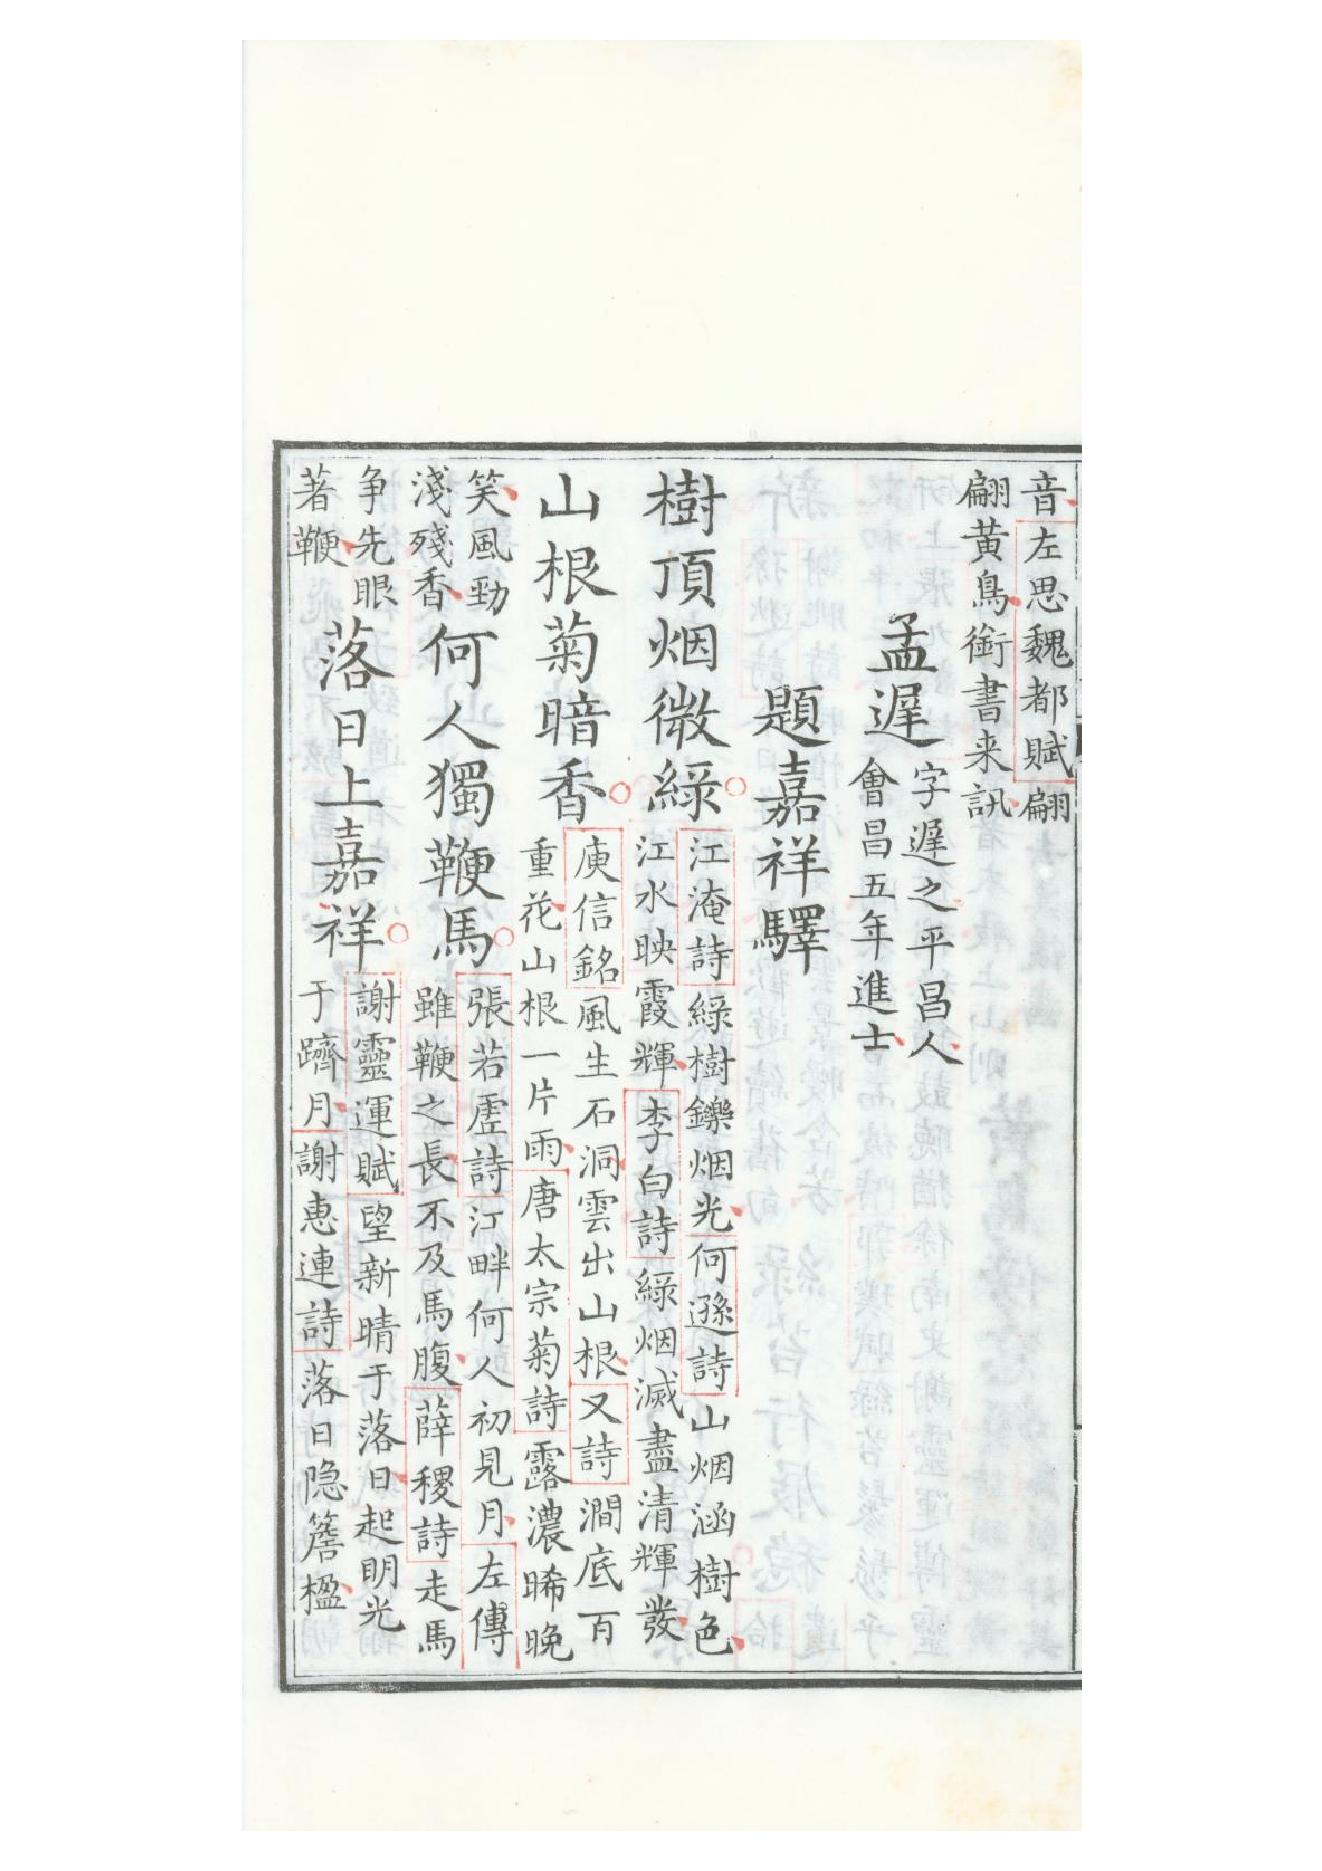 音左思魏都賦翩
翩黃鳥銜書来訊
孟遲字遲之平昌人
會昌五年進士
題嘉祥驛
樹頂烟微綠江淹詩綠樹鑠烟光何遜詩山烟涵樹色
江水映霞輝李白詩綠烟滅盡清輝發
山根菊暗香庾信銘風生石洞雲出山根又詩澗底百
重花山根一片雨唐太宗菊詩露濃晞晚
笑風勁
淺殘香何人獨鞭馬張若虛詩江畔何人初見月左傳
雖鞭之長不及馬腹薛稷詩走馬
争先眼
著鞭落日上嘉祥謝靈運賦望新晴于落日起明光
于躋月謝惠連詩落日隐簷楹